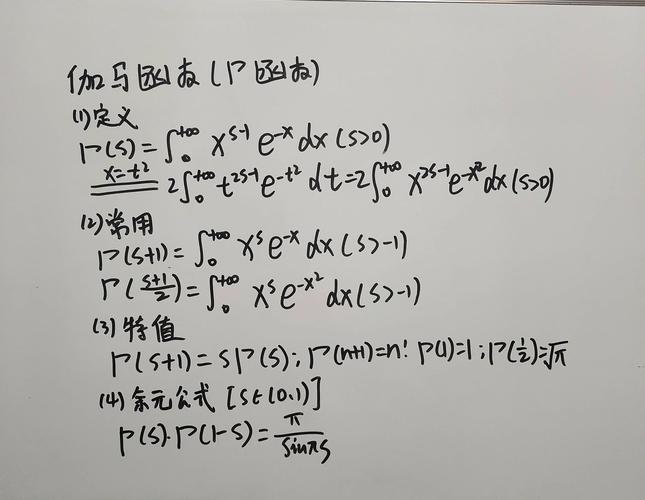 伽马函数(Γ函数)
(1)定义
Γ(s)=∫₀^{+∞} x^{s-1} e^{-x} dx (s>0)
x=t² 2∫₀^{+∞} t^{2s-1} e^{-t²} dt=2∫₀^{+∞} x^{2s-1} e^{-x²} dx (s>0)
(2)常用
Γ(s+1)=∫₀^{+∞} x^s e^{-x} dx (s>-1)
Γ(\frac{s+1}{2})=∫₀^{+∞} x^s e^{-x²} dx (s>-1)
(3)特值
Γ(s+1)=sΓ(s); Γ(n+1)=n! Γ(1)=1; Γ(\frac{1}{2})=√π
(4)余元公式 [s∈(0,1)]
Γ(s)·Γ(1-s)=\frac{π}{sinπs}